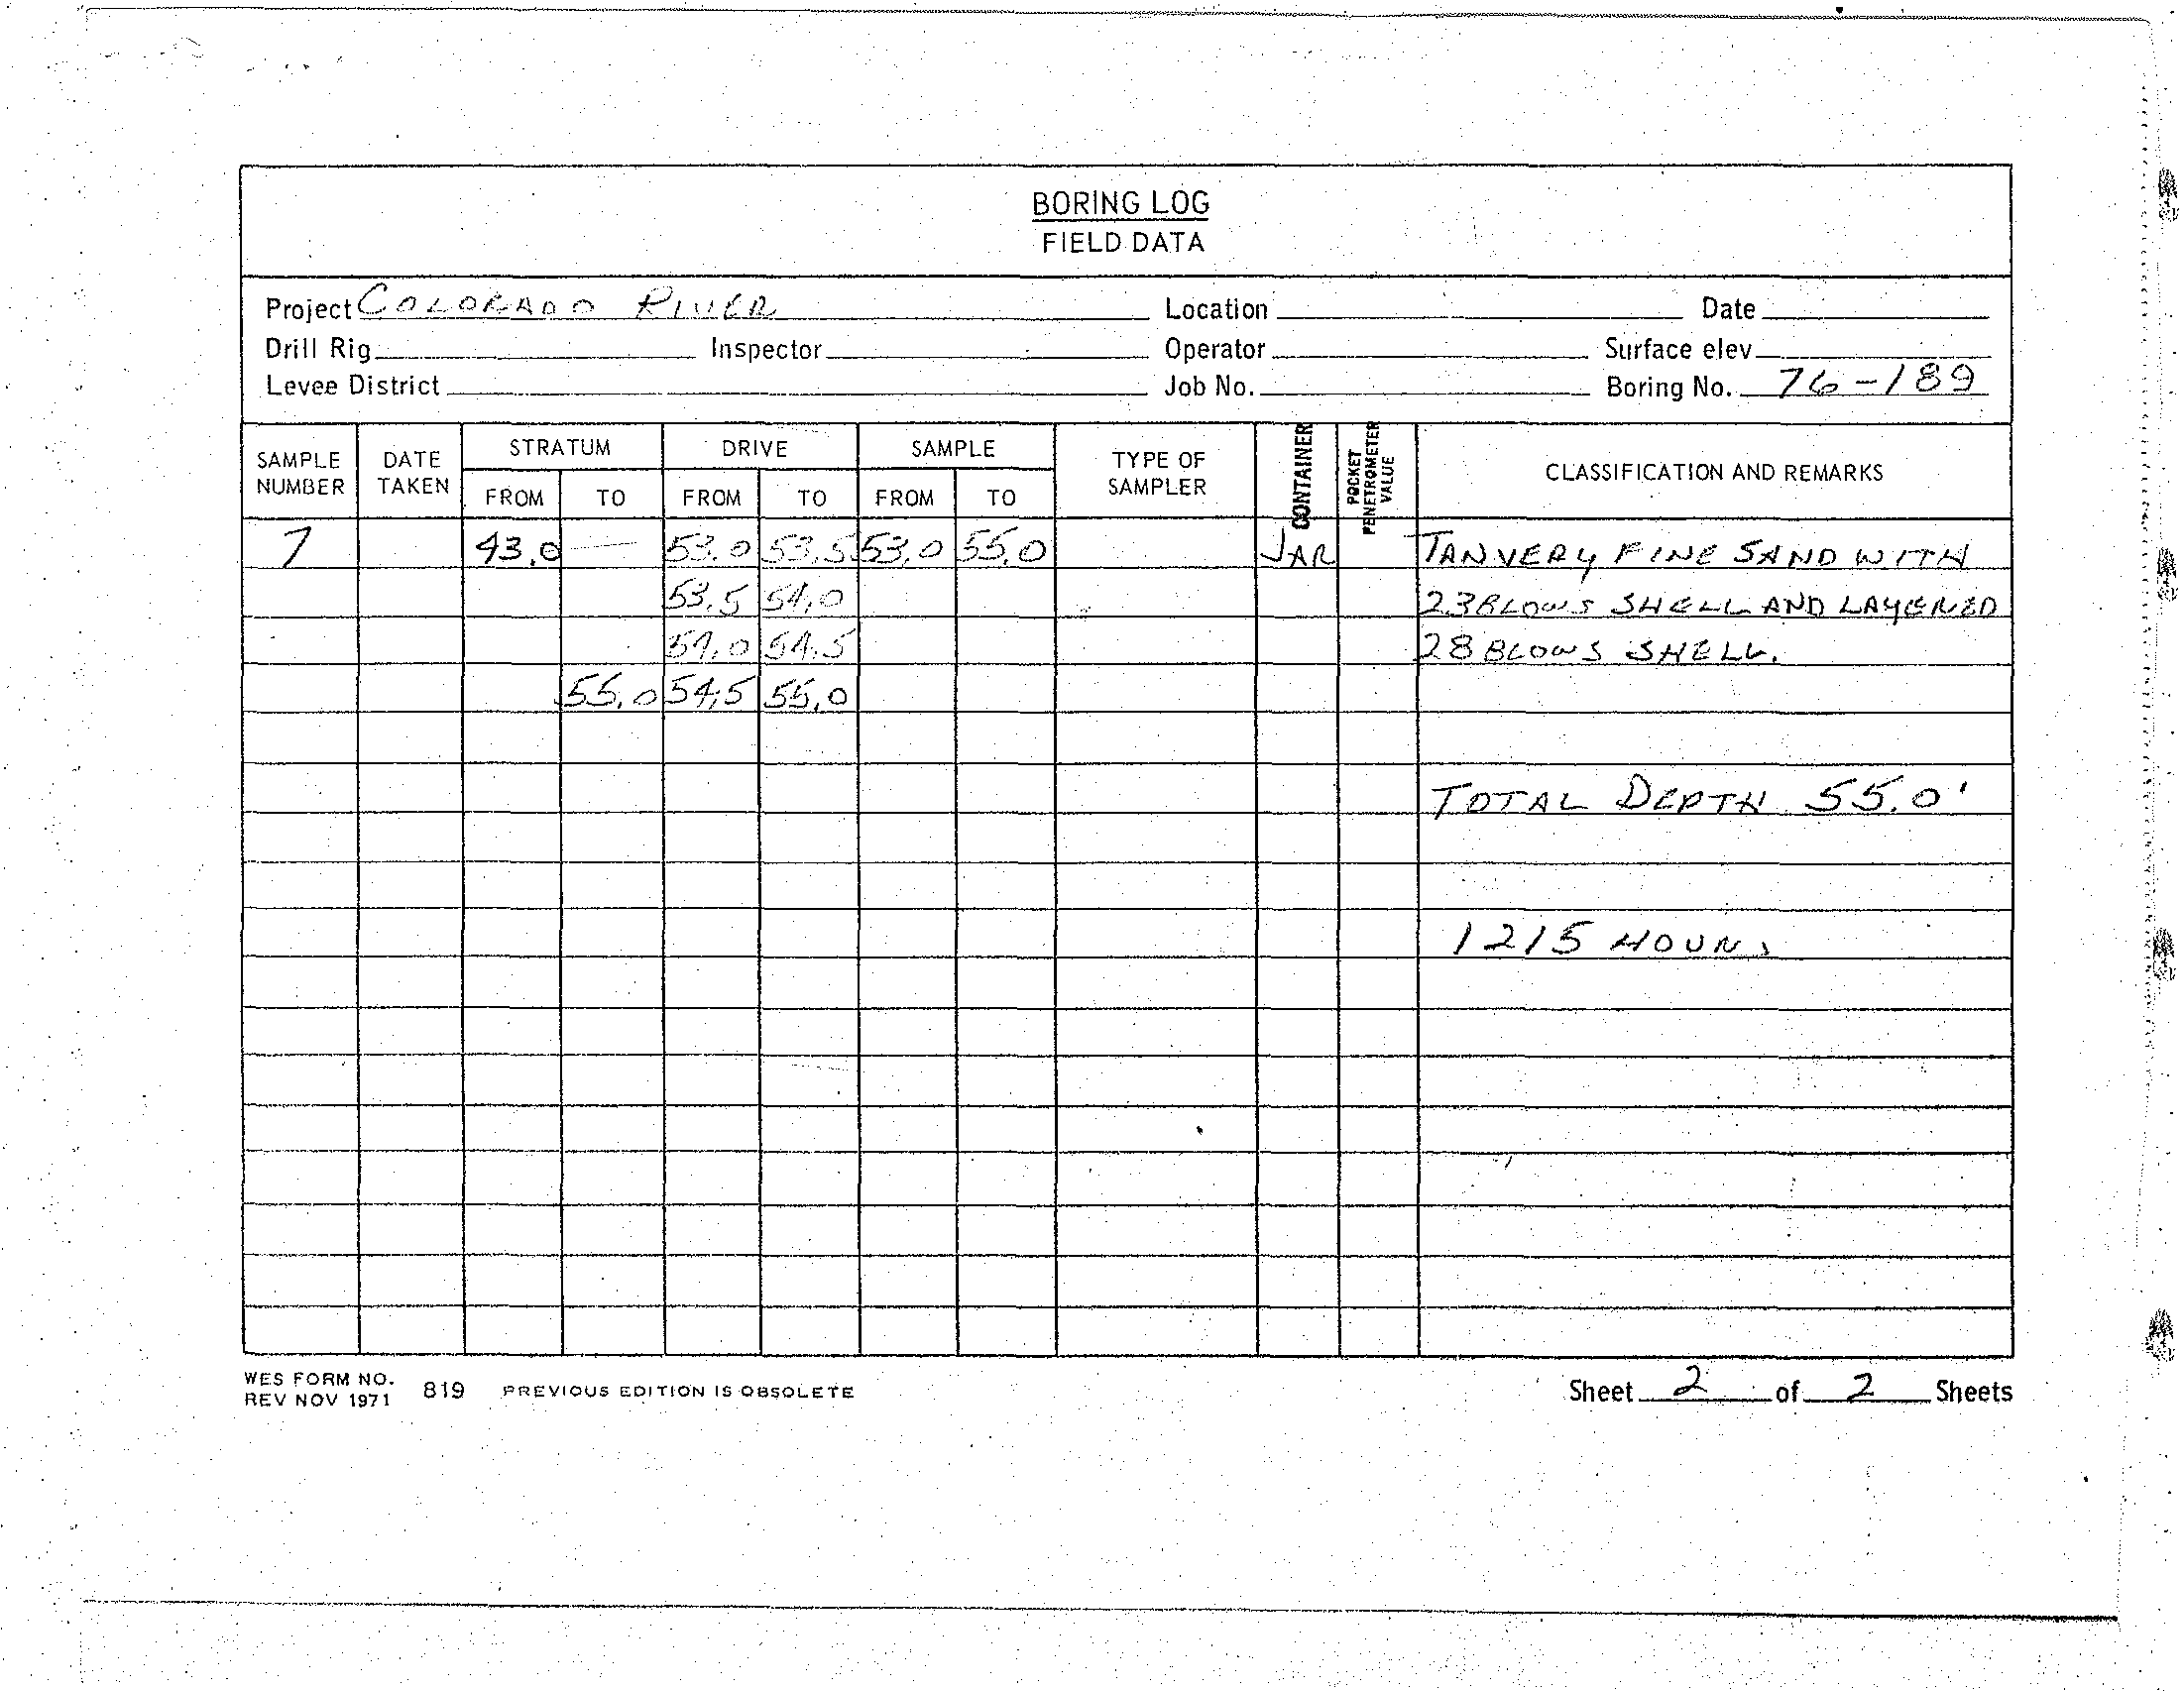 BORING LOG
FIELD DATA
Project COLORADO RIVER Location Date
Drill Rig Inspector Operator Surface elev
Levee District Job No. Boring No. 76-189
SAMPLE NUMBER DATE TAKEN STRATUM FROM TO DRIVE FROM TO SAMPLE FROM TO TYPE OF SAMPLER CONTAINER POCKET PENETROMETER VALUE CLASSIFICATION AND REMARKS
7 43.0 — 53.0 53.5 53.0 55.0 JAR TAN VERY FINE SAND WITH
53.5 54.0 23 BLOWS SHELL AND LAYERED
54.0 54.5 28 BLOWS SHELL.
55.0 54.5 55.0
TOTAL DEPTH 55.0'
1215 HOURS
WES FORM NO. 819 PREVIOUS EDITION IS OBSOLETE Sheet 2 of 2 Sheets
REV NOV 1971